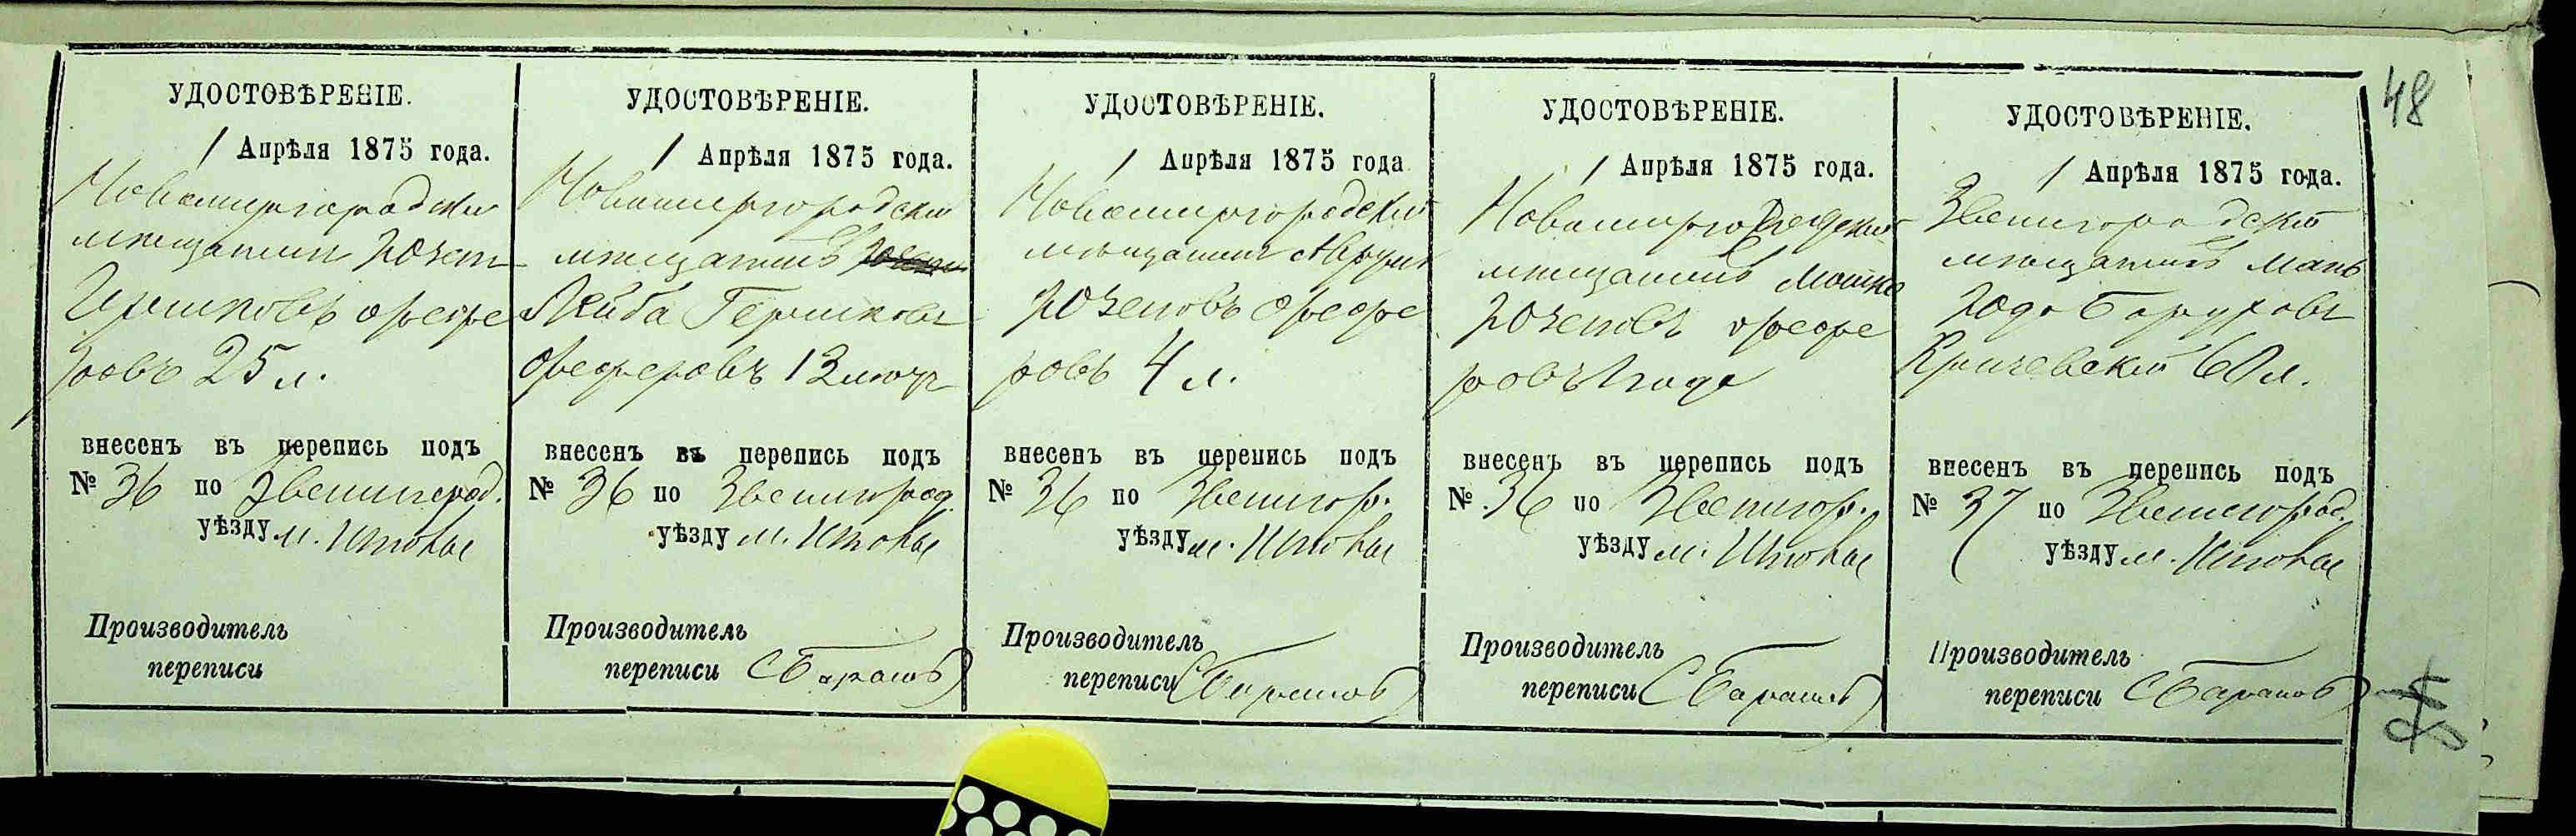 48
УДОСТОВѢРЕНІЕ.
1 Апрѣля 1875 года.
Новомиргородскій
мѣщанинъ
Гершковъ
ровъ 25 л.
внесенъ въ перепись подъ
№ 36 по Звенигород.
уѣзду м.
Производитель
переписи
УДОСТОВѢРЕНІЕ.
1 Апрѣля 1875 года.
Новомиргородскій
мѣщанинъ
Лейба Гершковъ
13
внесенъ въ перепись подъ
№ 36 по Звенигород.
уѣзду м.
Производитель
переписи СБарановъ
УДОСТОВѢРЕНІЕ.
1 Апрѣля 1875 года
Новомиргородскій
мѣщанинъ
ровъ 4 л.
внесенъ въ перепись подъ
№ 36 по Звенигор.
уѣзду м.
Производитель
переписи СБарановъ
УДОСТОВѢРЕНІЕ.
1 Апрѣля 1875 года.
Новомиргородскій
мѣщанинъ Мошко
ровъ 1 года
внесенъ въ перепись подъ
№ 36 по Звенигор.
уѣзду м.
Производитель
переписи СБарановъ
УДОСТОВѢРЕНІЕ.
1 Апрѣля 1875 года.
Звенигородскій
мѣщанинъ
Боруховъ
Кричевскій 60 л.
внесенъ въ перепись подъ
№ 37 по Звенигород.
уѣзду м.
Производитель
переписи СБарановъ